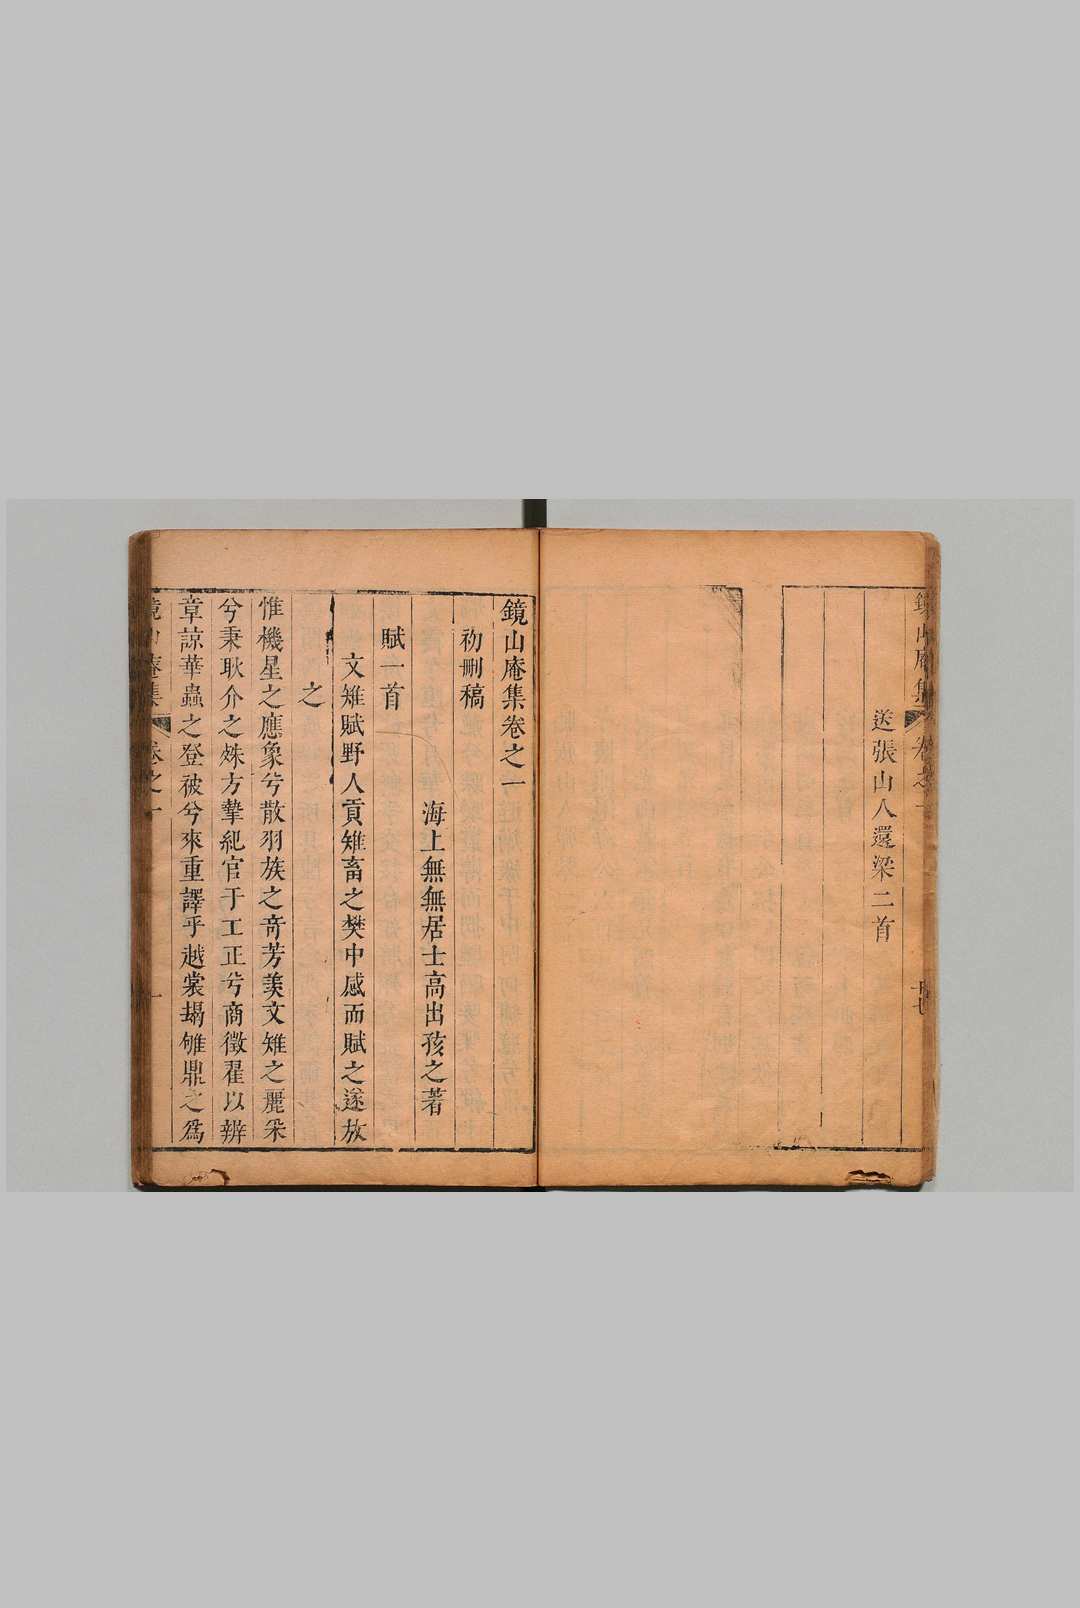 鏡山庵集
卷之一
送張山人還梁二首
鏡山庵集卷之一
初刪稿
海上無無居士高出孩之著
賦一首
文雉賦野人貢雉畜之樊中感而賦之遂放
之
惟機星之應象兮散羽族之奇芳羨文雉之麗采
兮秉耿介之姝方摯紀官于工正兮商徵翟以辨
章諒華蟲之登被兮來重譯乎越裳搨雊鼎之為
鏡山庵集
卷之一
一